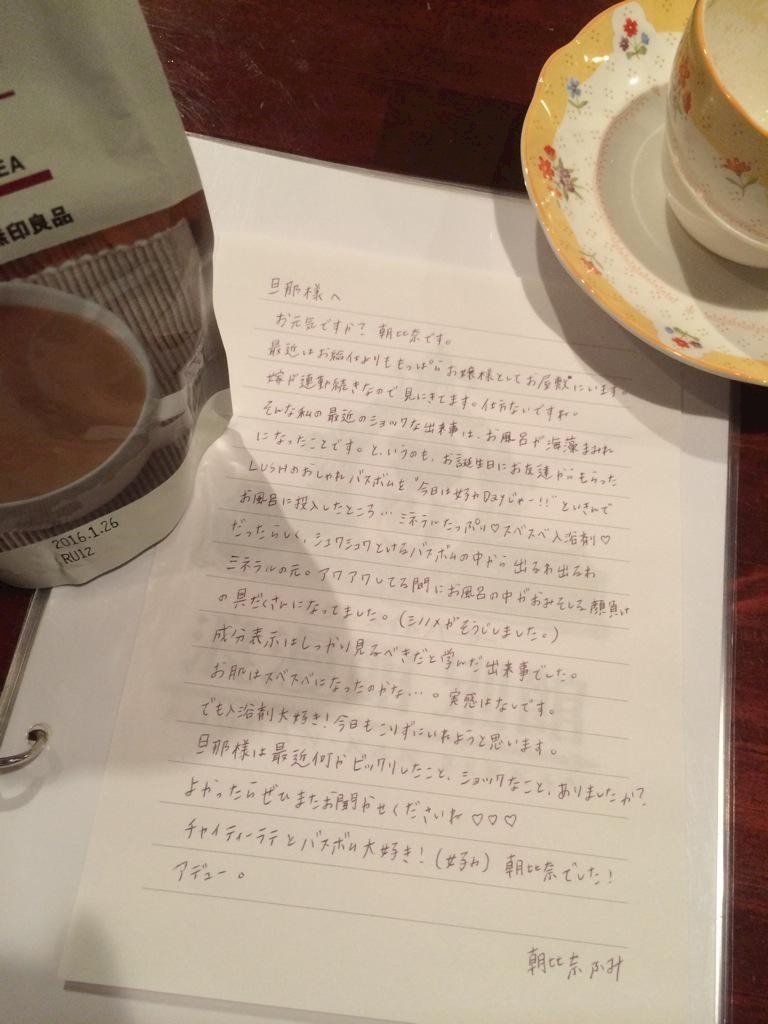 EA
無印良品
2016.1.26
RU12
旦那様へ
お元気ですか? 朝比奈です。
最近はお給仕よりももっぱらお嬢様としてお屋敷にいます。
嫁が連勤続きなので見にきてます。仕方ないですね。
そんな私の最近のショックな出来事は、お風呂が海藻まみれ
になったことです。と、いうのも、お誕生日にお友達からもらった
LUSHのおしゃれバスボムを"今日は好みDayじゃー!!"といきんで
お風呂に投入したところ… ミネラルたっぷり♡スベスベ入浴剤♡
だったらしく、シュワシュワとけるバスボムの中から出るわ出るわ
ミネラルの元。アワアワしてる間にお風呂の中がおみそしる顔負け
の具だくさんになってました。(シノメがそうじしました。)
成分表示はしっかり見るべきだと学んだ出来事でした。
お肌はスベスベになったのかな…。実感はなしです。
でも入浴剤大好き!今日もこりずにいれようと思います。
旦那様は最近何かビックリしたこと、ショックなこと、ありましたか?
よかったらぜひまたお聞かせくださいね♡♡♡
チャイティーラテとバスボム大好き!(好み) 朝比奈でした!
アデュー。
朝比奈ふみ